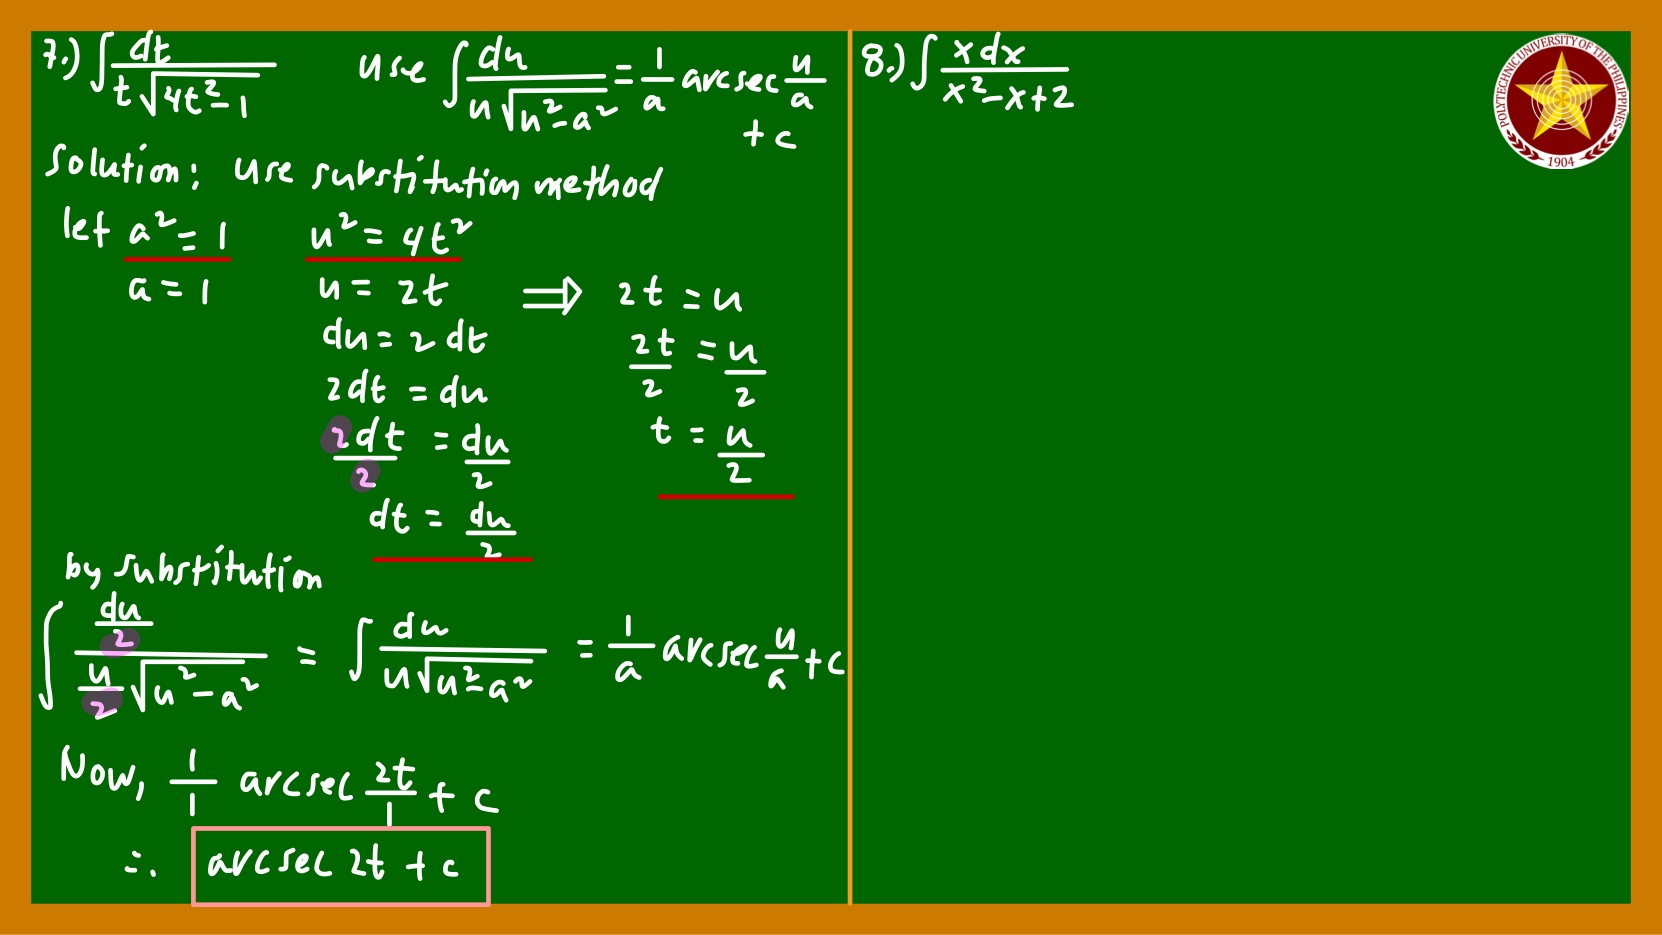 7.) ∫ dt / t√(4t² - 1) use ∫ du / u√(u² - a²) = 1/a arcsec u/a + c
Solution: use substitution method
let a² = 1 u² = 4t²
a = 1 u = 2t ⇒ 2t = u
du = 2 dt 2t/2 = u/2
2dt = du
2dt/2 = du/2 t = u/2
dt = du/2
by substitution
∫ (du/2) / (u/2 √(u² - a²)) = ∫ du / u√(u² - a²) = 1/a arcsec u/a + c
Now, 1/1 arcsec 2t/1 + c
∴ arcsec 2t + c
8.) ∫ x dx / x² - x + 2
POLYTECHNIC UNIVERSITY OF THE PHILIPPINES
1904